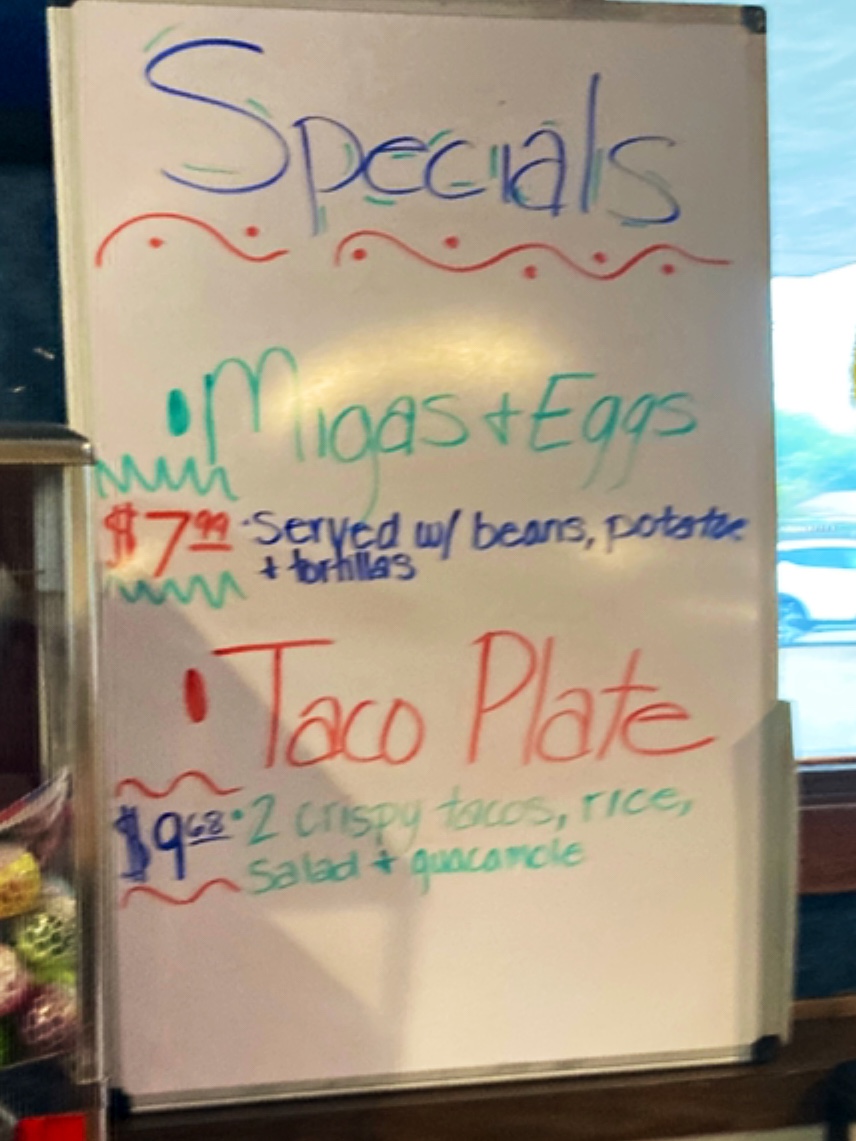 Specials
Migas + Eggs
$7.99 · Served w/ beans, potatoe
+ tortillas
Taco Plate
$9.68 · 2 crispy tacos, rice,
Salad + guacamole